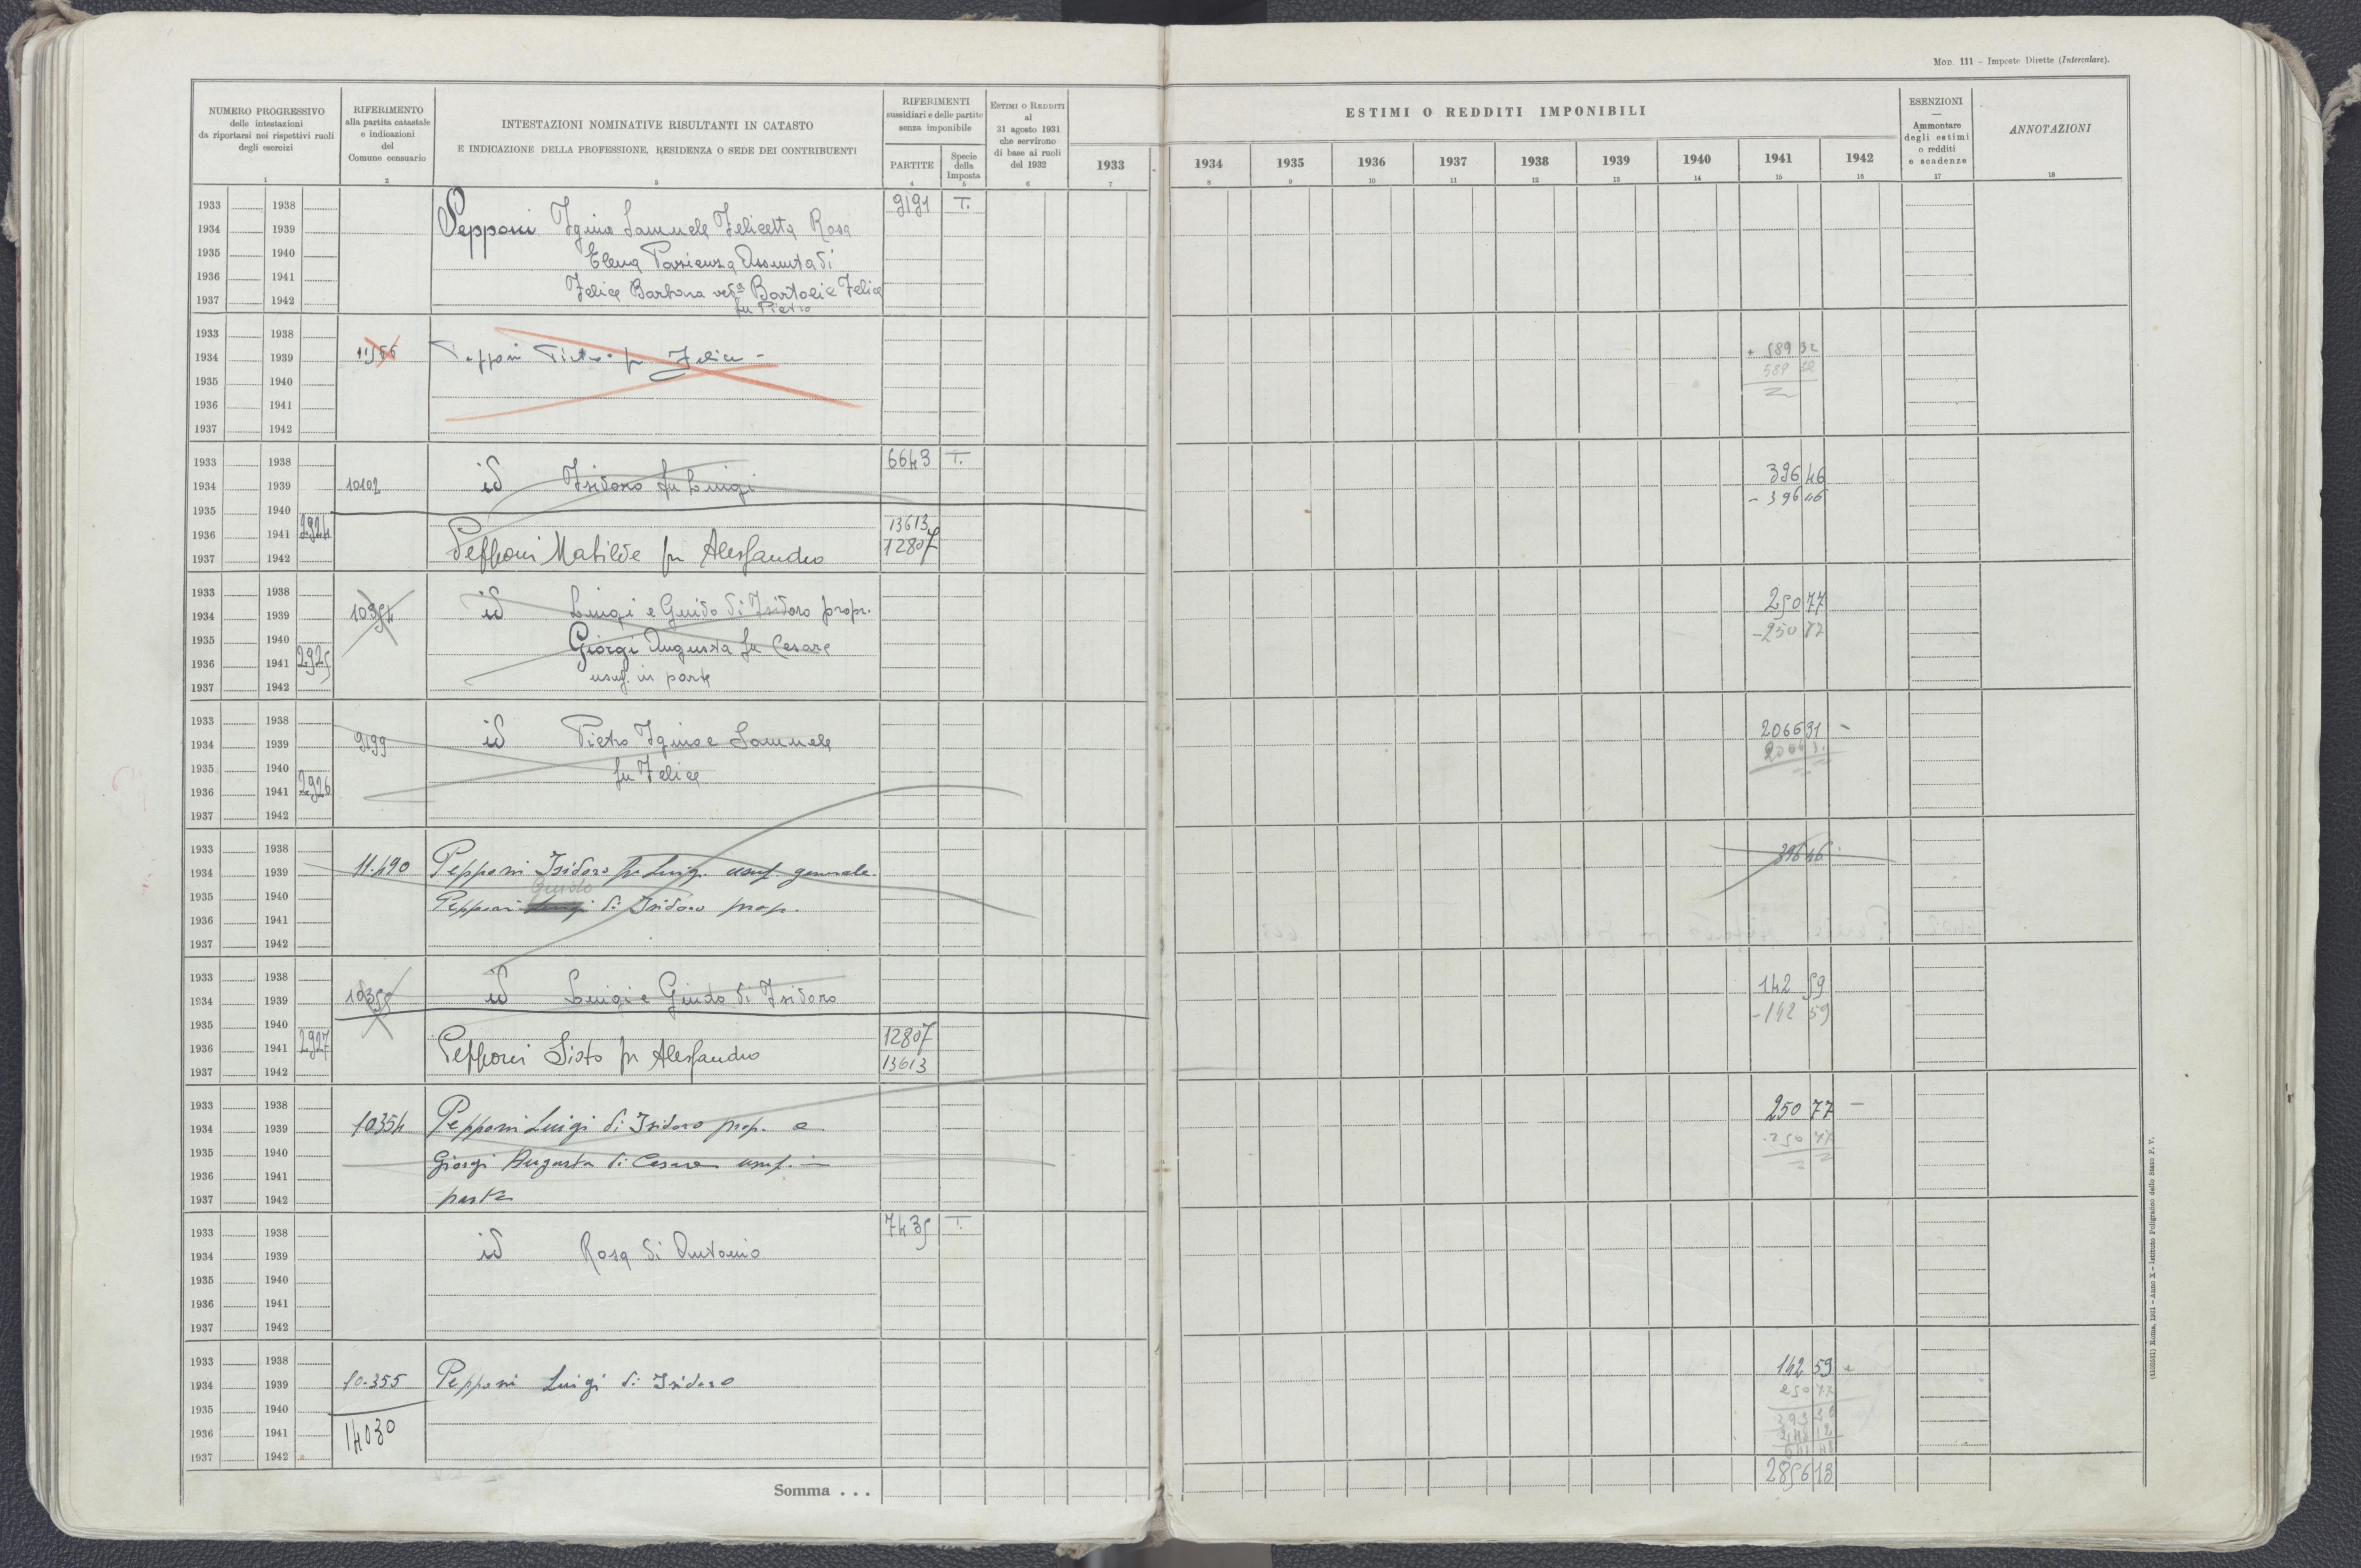 MOD. 111 - Imposte Dirette (Intercalare).
NUMERO PROGRESSIVO
delle intestazioni
da riportarsi nei rispettivi ruoli
degli esercizi
1
RIFERIMENTO
alla partita catastale
e indicazioni
del
Comune censuario
2
INTESTAZIONI NOMINATIVE RISULTANTI IN CATASTO
E INDICAZIONE DELLA PROFESSIONE, RESIDENZA O SEDE DEI CONTRIBUENTI
3
RIFERIMENTI
sussidiari e delle partite
senza imponibile
PARTITE
4
Specie
della
Imposta
5
ESTIMI O REDDITI
al
31 agosto 1931
che servirono
di base ai ruoli
del 1932
6
1933
7
ESTIMI O REDDITI IMPONIBILI
1934 1935 1936 1937 1938 1939 1940 1941 1942
8 9 10 11 12 13 14 15 16
ESENZIONI
—
Ammontare
degli estimi
o redditi
e scadenze
17
ANNOTAZIONI
18
1933 1938 9191 T.
1934 1939 Pepponi Igino Samuele Felicetta Rosa
1935 1940 Elena Pazienza Assunta di
1936 1941 Felice Barbara ved.a Bartolie Felice
1937 1942 fu Pietro
1933 1938
1934 1939 Pepponi Pietro fu Felice - + 589 32
1935 1940 589 32
1936 1941
1937 1942
1933 1938 6643 T.
1934 1939 10102 id Isidoro fu Luigi 396 46
1935 1940 - 396 46
1936 1941 2924 13613
1937 1942 Pepponi Matilde fu Alessandro 12807
1933 1938
1934 1939 10354 id Luigi e Guido di Isidoro propr. 250 77
1935 1940 Giorgi Augusta fu Cesare - 250 77
1936 1941 2925 usuf. in parte
1937 1942
1933 1938
1934 1939 9199 id Pietro Igino e Samuele 2066 31 -
1935 1940 fu Felice 2066 31
1936 1941 2926
1937 1942
1933 1938
1934 1939 11.490 Pepponi Isidoro fu Luigi usuf. generale. 396 46
1935 1940 Guido
1936 1941 Pepponi Luigi di Isidoro prop.
1937 1942
1933 1938
1934 1939 10355 id Luigi e Guido di Isidoro 142 59
1935 1940 - 142 59
1936 1941 2927 12807
1937 1942 Pepponi Sisto fu Alessandro 13613
1933 1938
1934 1939 10354 Pepponi Luigi di Isidoro prop. e 250 77 -
1935 1940 Giorgi Augusta di Cesare usuf. in - 250 77
1936 1941
1937 1942 parte
1933 1938 7435 T.
1934 1939 id Rosa di Antonio
1935 1940
1936 1941
1937 1942
1933 1938
1934 1939 10.355 Pepponi Luigi di Isidoro 142 59 +
1935 1940 250 77
1936 1941 14030 393 36
1937 1942
Somma . . . 2856 13
(4100551) Roma, 1931 - Anno X - Istituto Poligrafico dello Stato P. V.